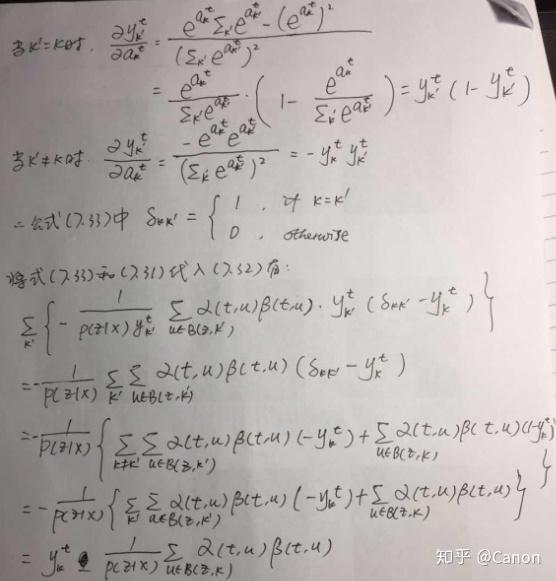 当k'=k时, ∂y_{k'}^t/∂a_k^t = (e^{a_k^t} Σ_{k'} e^{a_{k'}^t} - (e^{a_k^t})^2) / (Σ_{k'} e^{a_{k'}^t})^2
= e^{a_k^t}/(Σ_{k'} e^{a_{k'}^t}) · (1 - e^{a_k^t}/(Σ_{k'} e^{a_{k'}^t})) = y_{k'}^t (1 - y_{k'}^t)
当k'≠k时. ∂y_{k'}^t/∂a_k^t = -e^{a_k^t} e^{a_{k'}^t} / (Σ_{k'} e^{a_{k'}^t})^2 = -y_k^t y_{k'}^t
∴公式(7.33)中 δ_{kk'} = { 1, if k=k'
0, otherwise
将式(7.33)和(7.31)代入(7.32)有:
Σ_{k'} { - 1/(p(z|x) y_{k'}^t) Σ_{u∈B(z,k')} α(t,u)β(t,u) · y_{k'}^t (δ_{kk'} - y_k^t) }
= - 1/p(z|x) Σ_{k'} Σ_{u∈B(z,k')} α(t,u)β(t,u) (δ_{kk'} - y_k^t)
= - 1/p(z|x) { Σ_{k≠k'} Σ_{u∈B(z,k')} α(t,u)β(t,u)(-y_k^t) + Σ_{u∈B(z,k)} α(t,u)β(t,u)(1-y_k^t) }
= - 1/p(z|x) { Σ_{k'} Σ_{u∈B(z,k')} α(t,u)β(t,u)(-y_k^t) + Σ_{u∈B(z,k)} α(t,u)β(t,u) }
= y_k^t - 1/p(z|x) Σ_{u∈B(z,k)} α(t,u)β(t,u)
知乎 @Canon